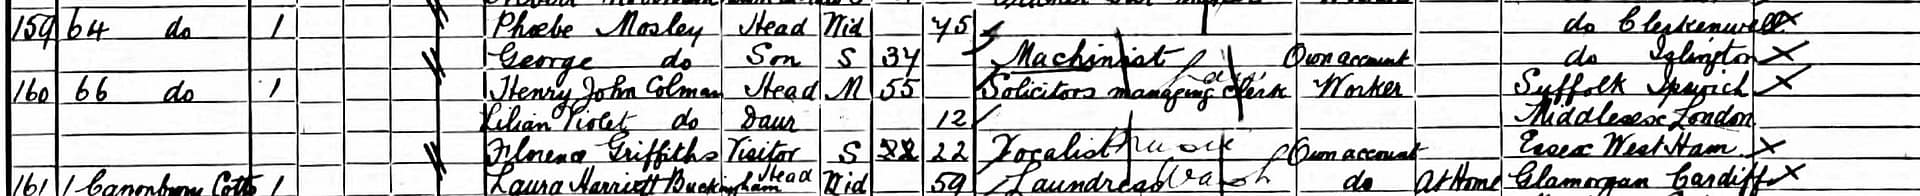 159 64 do 1 Phoebe Mosley Head Wid 75 do Clerkenwell
George do Son S 34 Machinist Own account do Islington
160 66 do 1 Henry John Colman Head M 55 Solicitors managing Clerk Worker Suffolk Ipswich
Lilian Violet do Daur 12 Middlesex London
Florence Griffiths Visitor S 22 22 Vocalist music Own account Essex West Ham
161 1 Canonbury Cotts 1 Laura Harriett Buckingham Head Wid 59 Laundress Wash do At Home Glamorgan Cardiff